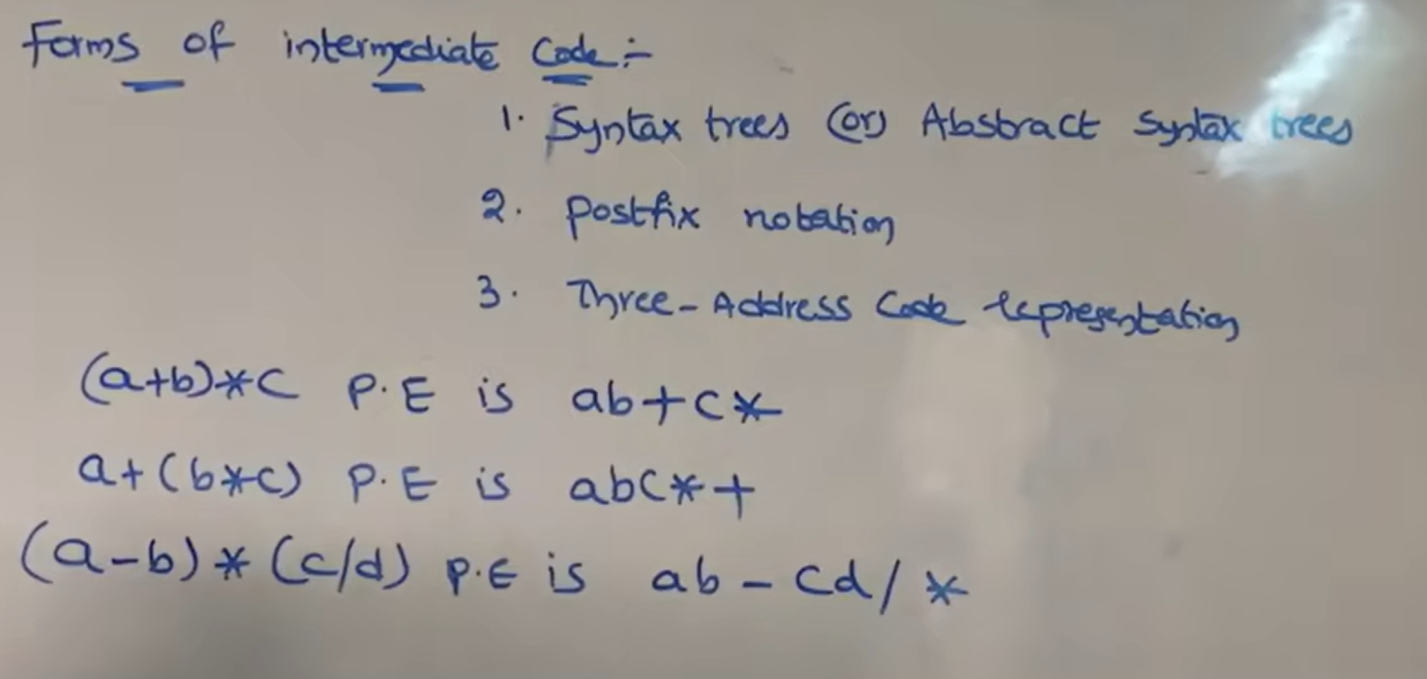 Forms of intermediate Code :-
1. Syntax trees (or) Abstract Syntax trees
2. Postfix notation
3. Three-Address Code representation
(a+b)*c P.E is ab+c*
a+(b*c) P.E is abc*+
(a-b)*(c/d) P.E is ab-cd/*